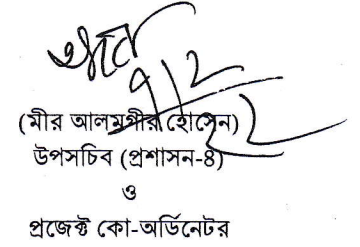 (মীর আলমগীর হোসেন)
উপসচিব (প্রশাসন-৪)
ও
প্রজেক্ট কো-অর্ডিনেটর